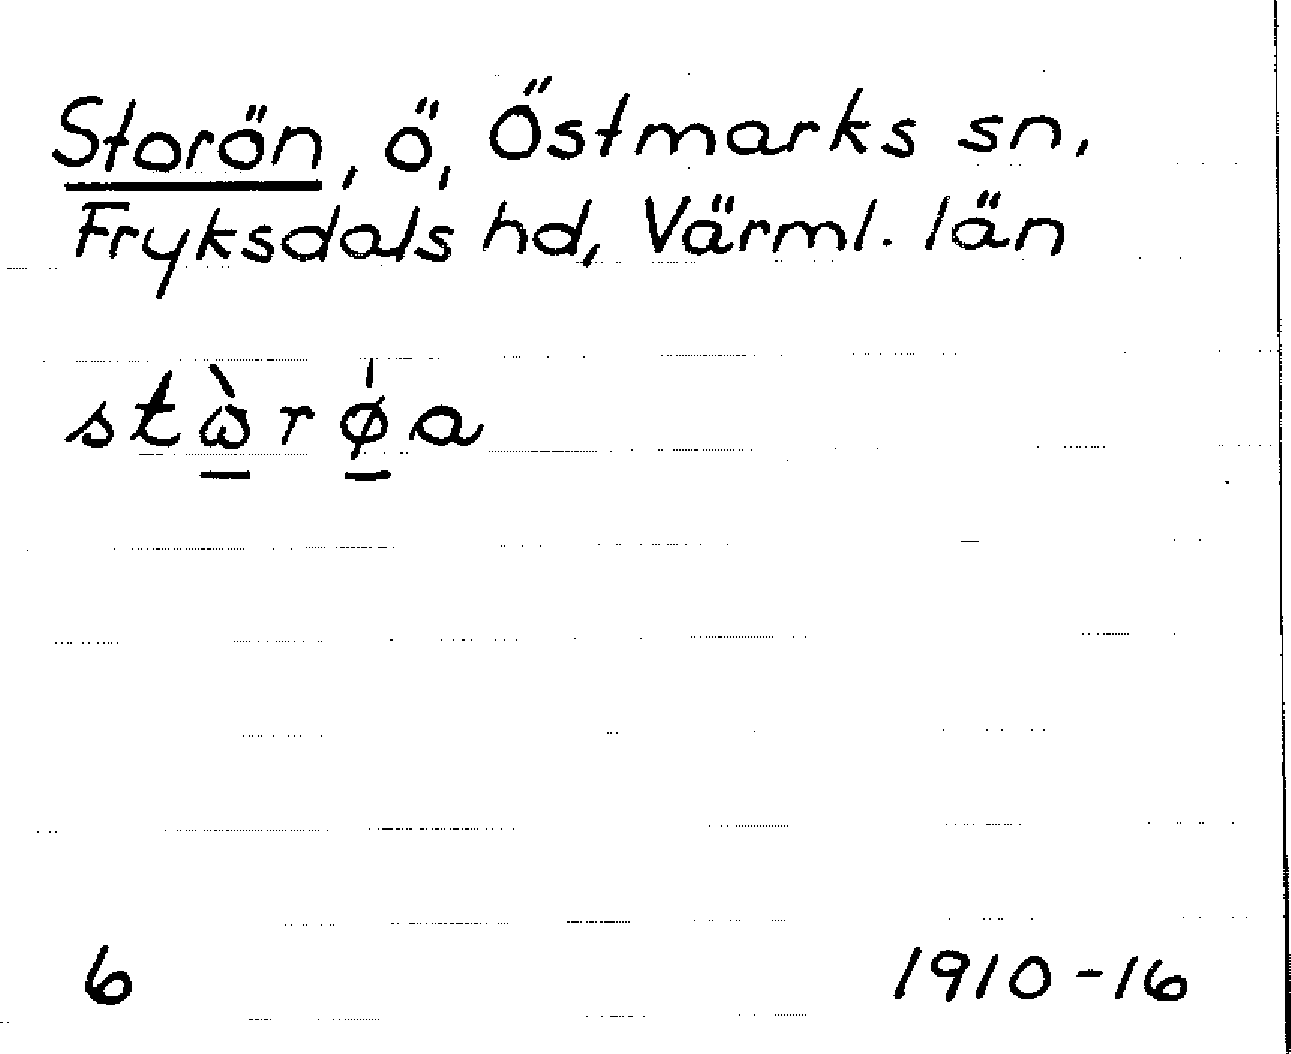 Storön, ö, Östmarks sn,
Fryksdals hd, Värml. län
stὼ̲rǿ̲a
6 1910-16